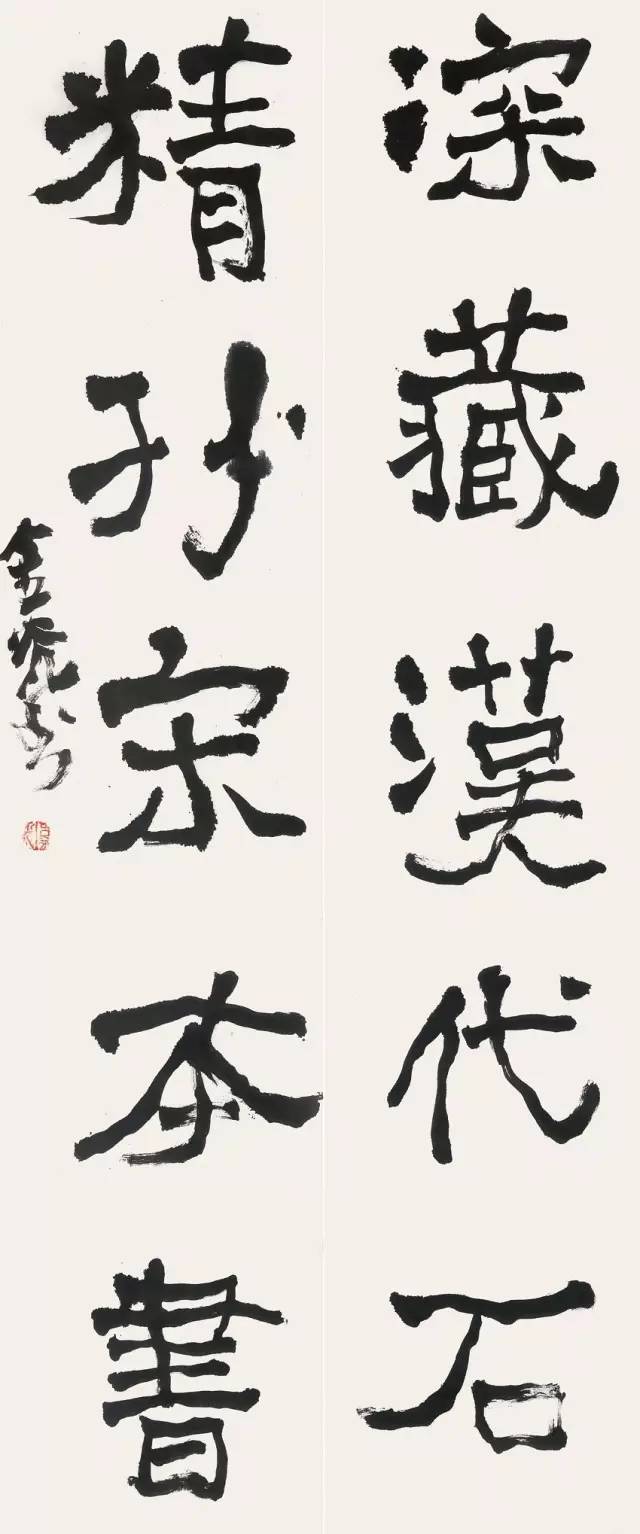 深藏漢代石
精抄宋本書